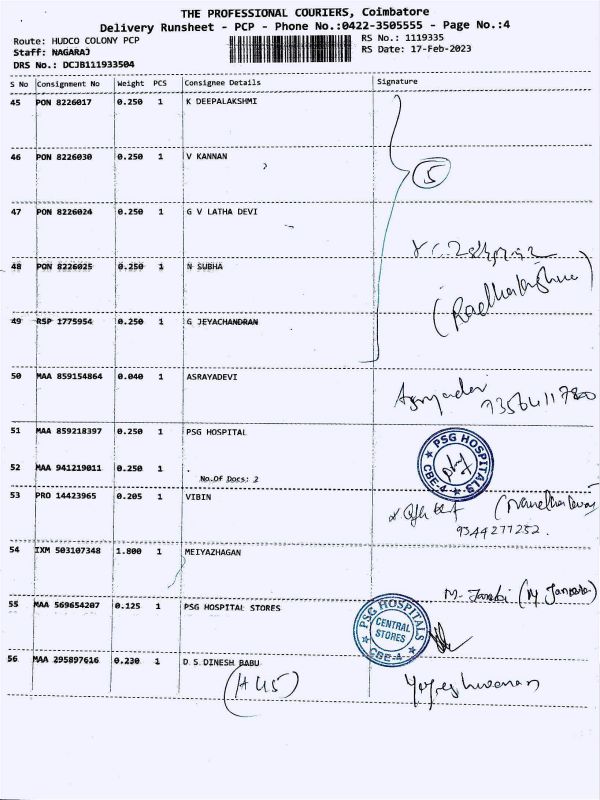 THE PROFESSIONAL COURIERS, Coimbatore
Delivery Runsheet - PCP - Phone No.:0422-3505555 - Page No.:4
Route: HUDCO COLONY PCP
RS No.: 1119335
Staff: NAGARAJ
RS Date: 17-Feb-2023
DRS No.: DCJB111933504
S No Consignment No Weight PCS Consignee Details Signature
45 PON 8226017 0.250 1 K DEEPALAKSHMI
46 PON 8226030 0.250 1 V KANNAN
5
47 PON 8226024 0.250 1 G V LATHA DEVI
48 PON 8226025 0.250 1 N SUBHA
(Radhalakshmi)
49 RSP 1775954 0.250 1 G JEYACHANDRAN
50 MAA 859154864 0.040 1 ASRAYADEVI
51 MAA 859218397 0.250 1 PSG HOSPITAL
PSG HOSPITALS
CBE-4
52 MAA 941219011 0.250 1 .
No.Of Docs: 2
53 PRO 14423965 0.205 1 VIBIN
9344277252.
54 IXM 503107348 1.800 1 MEIYAZHAGAN
55 MAA 569654207 0.125 1 PSG HOSPITAL STORES
PSG HOSPITALS
CENTRAL
STORES
CBE-4
56 MAA 295897616 0.230 1 D.S.DINESH BABU
(H45)
Yogeshwaran